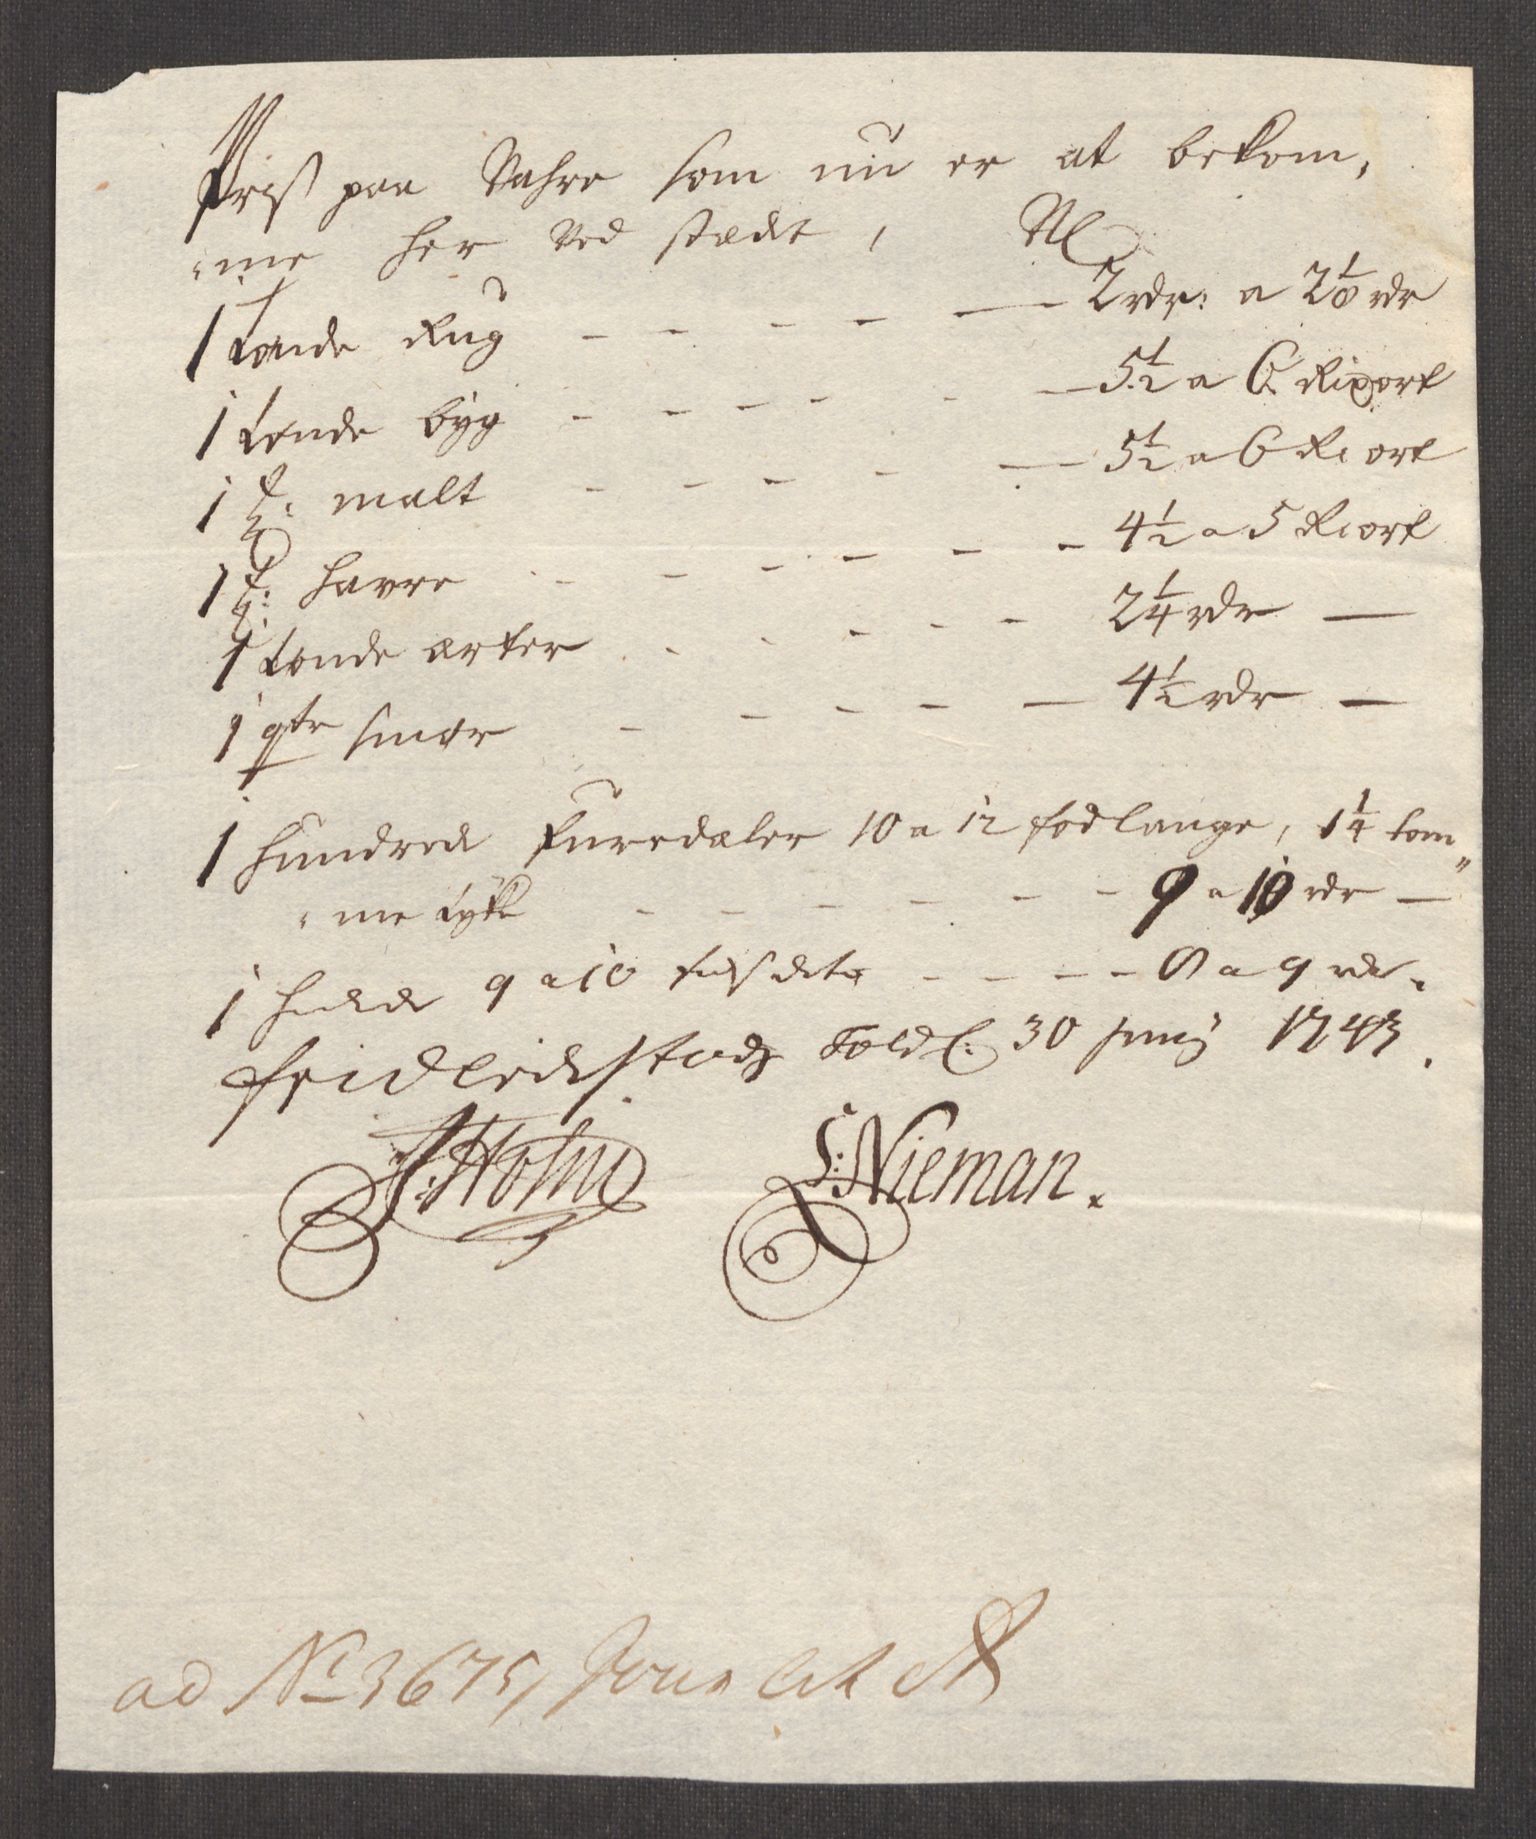 Priss paa Vahre som nu er at bekom,
„me her ved stædet, Nl
1 tønde Rug — — — — — 2 rdr: a 2 1/8 rdr
1 tønde byg — — — — — 5 1/2 a 6 Rixort
1 t: malt — — — — — 5 1/2 a 6 Rixort
1 t: havre — — — — — 4 1/2 a 5 Rixort
1 tønde erter — — — — 2 1/4 rdr —
1 qtr smør — — — — — 4 1/2 rdr —
1 hundrede furedæler 10 a 12 fod lange, 1 1/4 tom„
„me tyke — — — — — — 9 a 10 rdr —
1 9 a 10 fods dito — — — — 8 a 9 rdr.
Fridrichstads Told C: 30 Junij 1743.
Holm L: Nieman.
ad No 3675, Jour Lit A